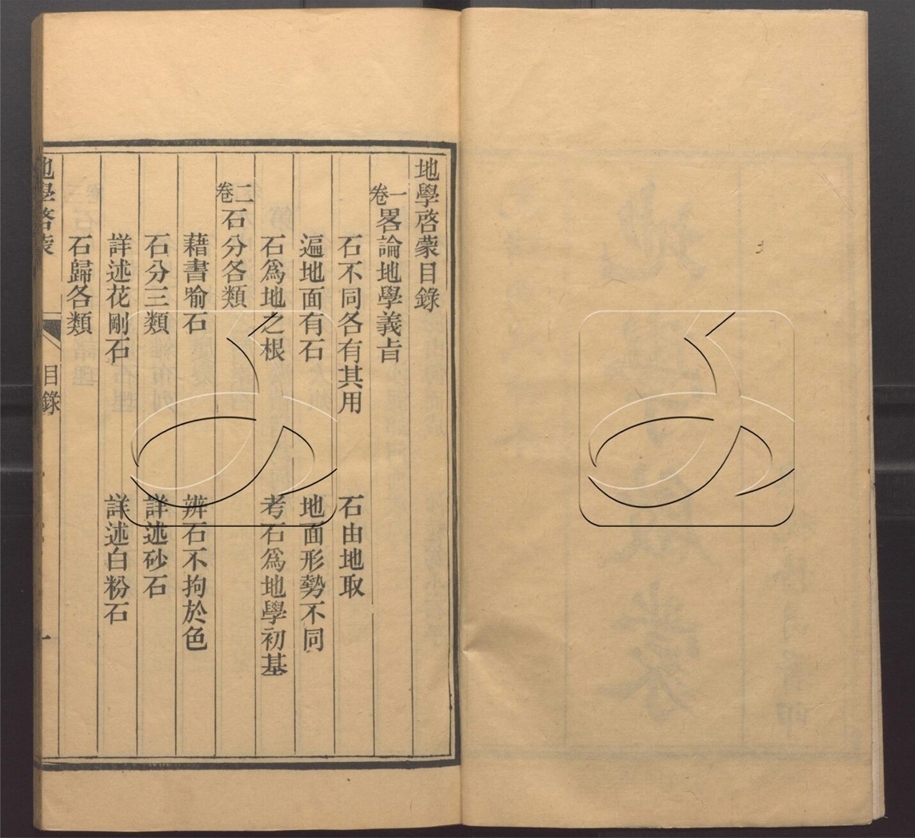 地學啓蒙目錄
卷一 畧論地學義旨
石不同各有其用 石由地取
遍地面有石 地面形勢不同
石爲地之根 考石爲地學初基
卷二 石分各類
藉書喻石 辨石不拘於色
石分三類 詳述砂石
詳述花剛石 詳述白粉石
石歸各類
地學啓蒙 目錄 一